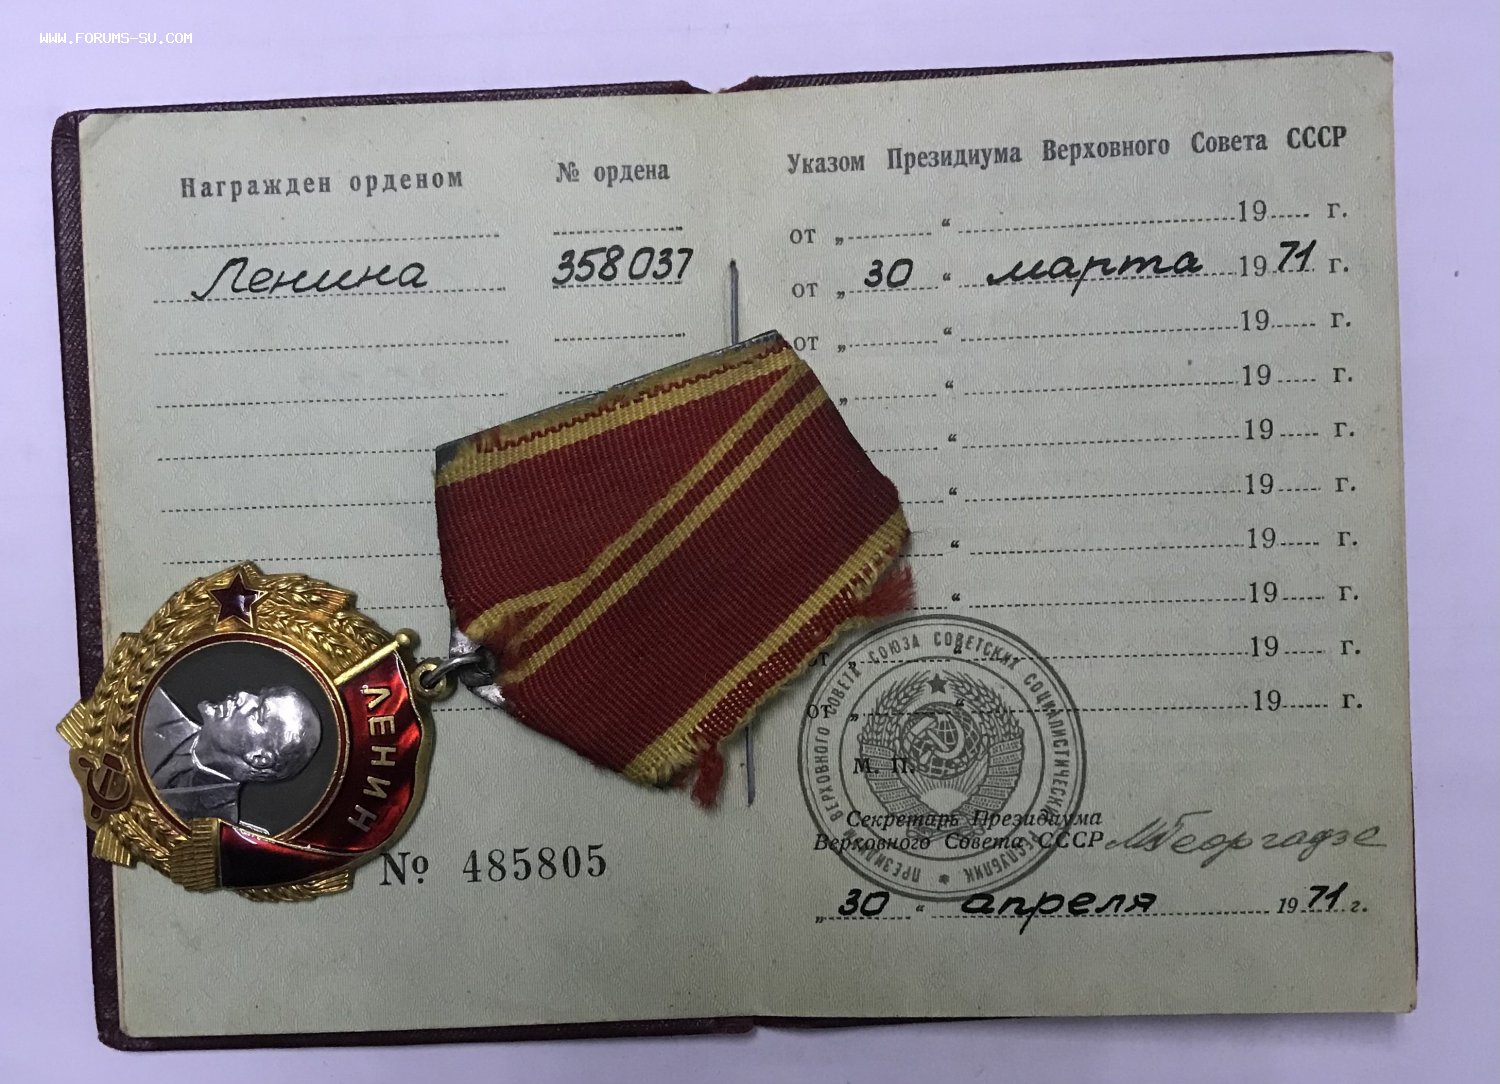 WWW.FORUMS-SU.COM
Награжден орденом
№ ордена
Ленина
358037
ЛЕНИН
№ 485805
Указом Президиума Верховного Совета СССР
от „ “ 19 г.
от „ 30 “ марта 19 71 г.
от „ “ 19 г.
„ “ 19 г.
“ 19 г.
“ 19 г.
“ 19 г.
“ 19 г.
от „ “ 19 г.
от „ “ 19 г.
ПРЕЗИДИУМ ВЕРХОВНОГО СОВЕТА СОЮЗА СОВЕТСКИХ СОЦИАЛИСТИЧЕСКИХ РЕСПУБЛИК
М. П.
Секретарь Президиума
Верховного Совета СССР МГеоргадзе
„ 30 “ апреля 19 71 г.